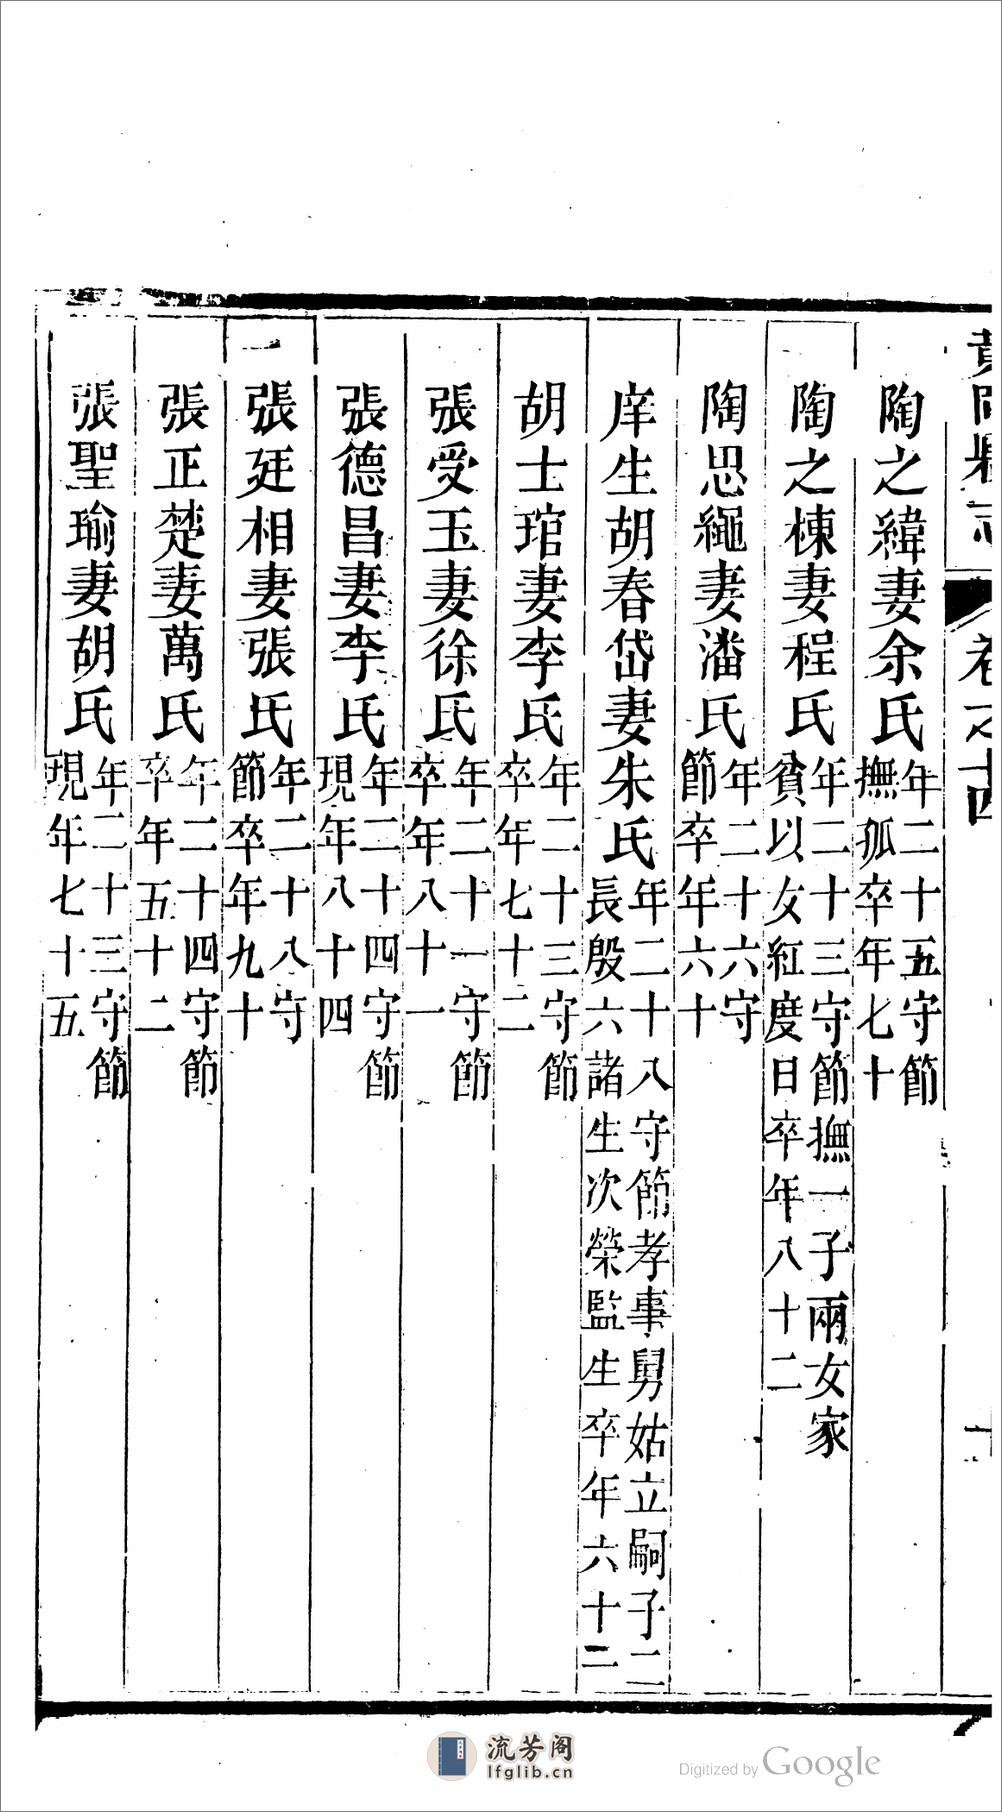 黃岡縣志 卷之十四
陶之緯妻余氏年二十五守節撫孤卒年七十
陶之棟妻程氏年二十三守節撫一子兩女家貧以女紅度日卒年八十二
陶思繩妻潘氏年二十六守節卒年六十
庠生胡春岱妻朱氏年二十八守節孝事舅姑立嗣子二長殿六諸生次榮監生卒年六十二
胡士琯妻李氏年二十三守節卒年七十二
張受玉妻徐氏年二十一守節卒年八十一
張德昌妻李氏年二十四守節現年八十四
張廷相妻張氏年二十八守節卒年九十
張正楚妻萬氏年二十四守節卒年五十二
張聖瑜妻胡氏年二十三守節現年七十五
流芳阁
lfglib.cn
Digitized by Google